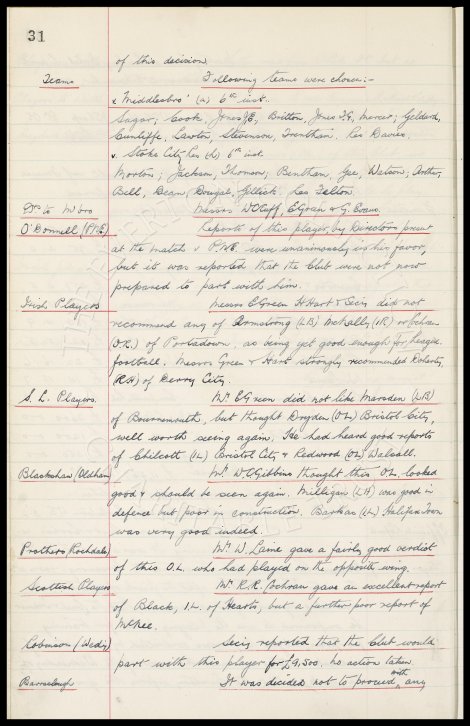 31
of this decision.
Teams Following teams were chosen:-
v Middlesbro' (a) 6th inst.
Sagar; Cook, Jones JE, Britton, Jones TG, Mercer; Geldard,
Cunliffe, Lawton, Stevenson, Trentham, Res Davies.
v. Stoke City Res (h) 6th inst.
Morton; Jackson, Thomson; Bentham, Gee, Watson; Arthur,
Bell, Dean, Dougal, Gillick, Res Felton.
Drs to M'bro Messrs W C Cuff, E Green & G. Evans.
O'Donnell (P.N.E) Reports of this player, by Directors present
at the match v P.N.E. were unanimously in his favor,
but it was reported that the Club were not now
prepared to part with him.
Irish Players Messrs E Green H Hart & Secy did not
recommend any of Armstrong (LB) McNally (IR) or Cochran
(O.R.) of Portadown, as being yet good enough for league
football. Messrs Green & Hart strongly recommended Doherty,
(RH) of Derry City.
S. L. Players. Mr. E Green did not like Marsden (LB)
of Bournemouth, but thought Dryden (OL) Bristol City,
well worth seeing again. He had heard good reports
of Chilcott (IL) Bristol City & Redwood (OL) Walsall.
Blackshaw (Oldham) Mr. W C Gibbins thought this O.L. looked
good & should be seen again. Milligan (LH) was good in
defence but poor in construction. Barkas (IL) Halifax Town
was very good indeed.
Prothers (Rochdale) Mr. W. Laine gave a fairly good verdict
of this O.L. who had played on the opposite wing.
Scottish Players Mr. R.R. Cochran gave an excellent report
of Black, I.L. of Hearts, but a further poor report of
McKee.
Robinson (Wedy) Secy reported that the Club would
part with this player for £9,500. No action taken
Barraclough It was decided not to proceed with any